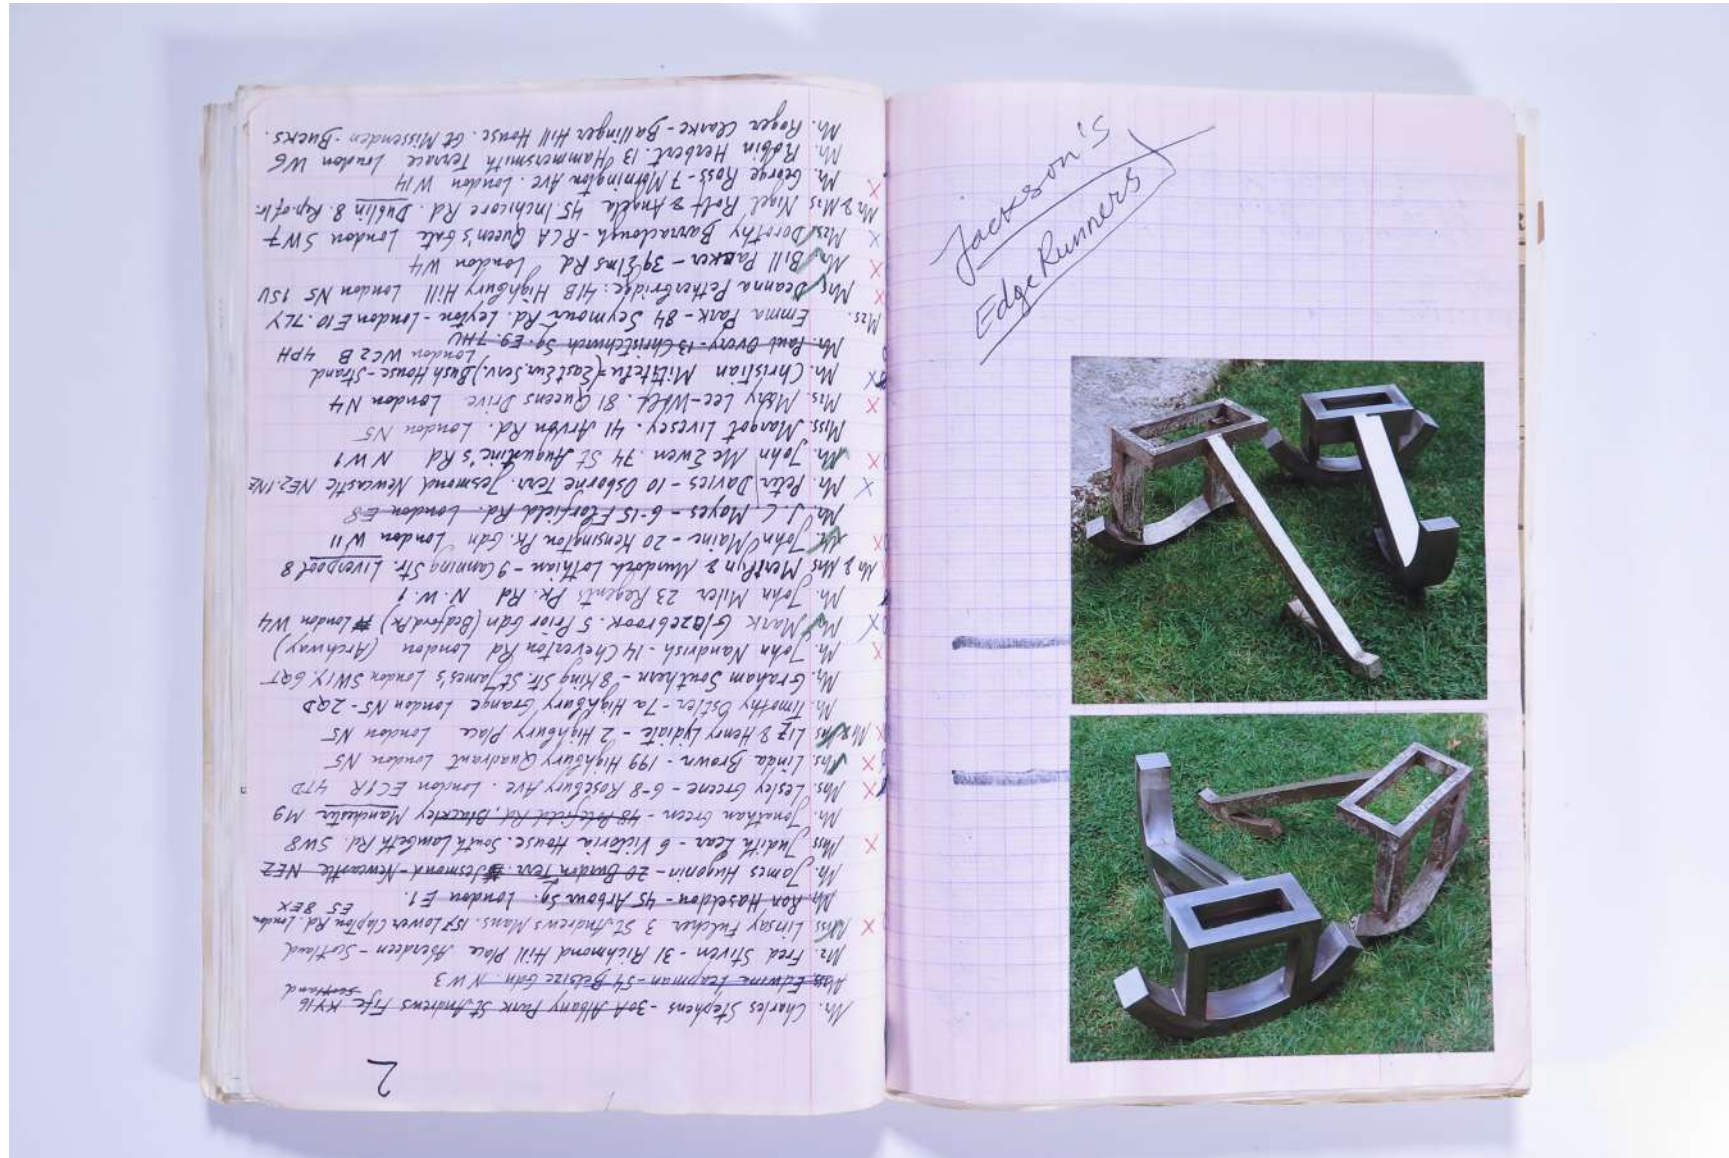 2
Mr. Charles Stephens - 30A Albany Park St. Andrews Fife KY16
Scotland
Miss Edwina Leapman - 54 Belsize Gdn. NW3
Mr. Fred Stiven - 31 Richmond Hill Place Aberdeen - Scotland
Miss Linsay Fulcher 3 St. Andrews Mans. 157 Lower Clapton Rd. London
E5 8EX
Mr. Ron Haseldon - 45 Arbour Sq. London E1.
Mr. James Hugonin - 20 Burdon Terr. Jesmond - Newcastle NE2
Miss Judith Lear - 6 Victoria House. South Lambeth Rd. SW8
Mr. Jonathan Green - 48 Polefield Rd, Blackley Manchester M9
Mrs. Lesley Greene - 6-8 Rosebury Ave. London EC1R 4TD
Mrs. Linda Brown - 199 Highbury Quadrant London N5
Mr & Mrs Liz & Henry Lydiate - 2 Highbury Place London N5
Mr. Timothy Ostler - 7a Highbury Grange London N5-2QD
Mr. Graham Southern - 8 King Str. St. James's London SW1Y 6QT
Mr. John Nandrish - 14 Cheverton Rd London (Archway)
Mr. Mark Glazebrook. 5 Prior Gdn (Bedford Pk) London W4
Mr. John Miler 23 Regents Pk. Rd N.W.1
Mr & Mrs Merilyn & Murdoch Lothian - 9 Canning Str. Liverpool 8
Mr. John Maine - 20 Kensington Pk. Gdn London W11
Mr. J. L. Mayes - 6-15 Florfield Rd. London E8
Mr. Peter Davies - 10 Osborne Terr. Jesmond Newcastle NE2.1NE
Mr. John McEwen. 74 St Augustine's Rd NW1
Miss. Margot Livesey. 41 Arvon Rd. London N5
Mrs. Mary Lee-Wolf. 81 Queens Drive London N4
Mr. Christian Mititelu (East Eur. Serv.) Bush House - Strand
London WC2B 4PH
Mr. Paul Overy - 13 Christchurch Sq. E9. 7HU
Mrs. Emma Park - 84 Seymour Rd. Leyton - London E10.7LY
Mrs Deanna Petherbridge: 41B Highbury Hill London N5 1SU
Mr. Bill Packer - 39 Elms Rd London W4
Mrs. Dorothy Barraclough - RCA Queen's Gate London SW7
Mr & Mrs Nigel Rolf & Angela 45. Inchicore Rd. Dublin 8. Rep. of Ir.
Mr. George Ross - 7 Mornington Ave. London W14
Mr. Robin Herbert. 13 Hammersmith Terrace London W6
Mr. Roger Clarke - Ballinger Hill House. Gt Missenden - Bucks.
Jackson's
Edge Runners